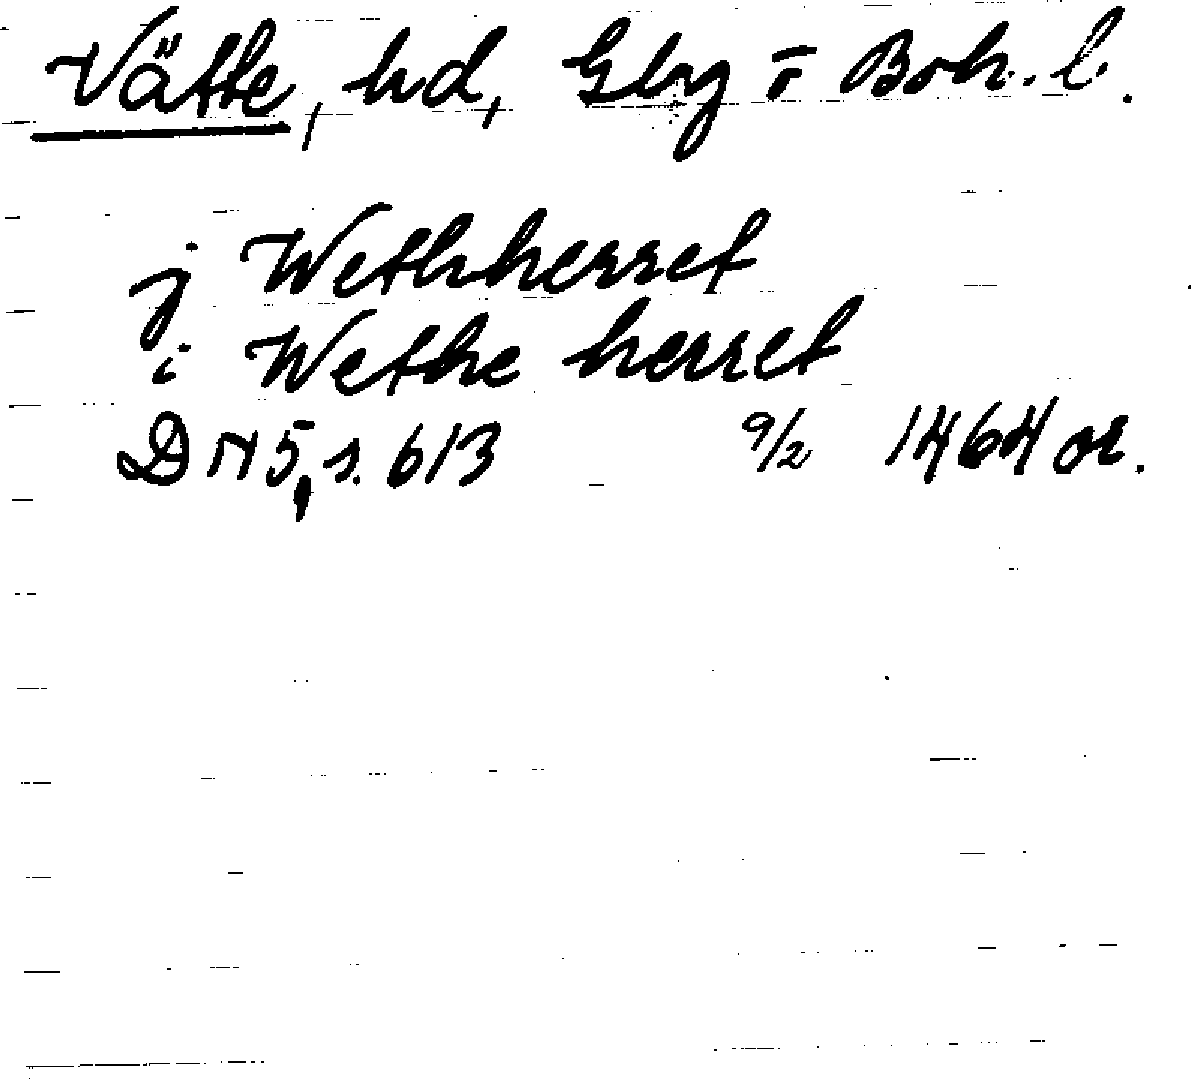 Vätte, hd, Gbg o Boh. l.
j Wethherret
i Wethe herret
DN 5, s. 613 9/2 1464 or.